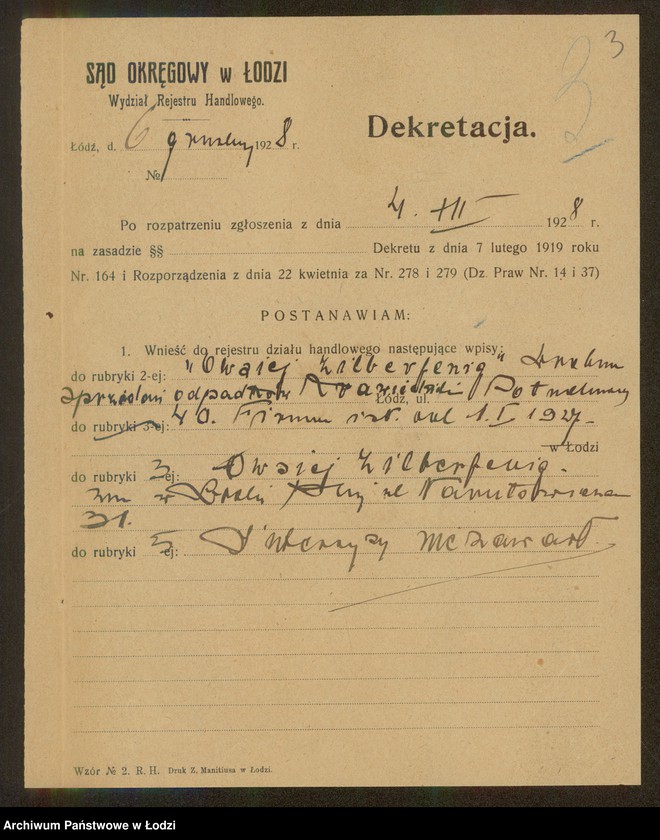 3
3
SĄD OKRĘGOWY w ŁODZI
Wydział Rejestru Handlowego.
Dekretacja.
Łódź, d. 6 grudnia 1928 r.
№
Po rozpatrzeniu zgłoszenia z dnia 4. XII 1928 r.
na zasadzie §§ Dekretu z dnia 7 lutego 1919 roku
Nr. 164 i Rozporządzenia z dnia 22 kwietnia za Nr. 278 i 279 (Dz. Praw Nr. 14 i 37)
POSTANAWIAM:
1. Wnieść do rejestru działu handlowego następujące wpisy:
do rubryki 2-ej: "Owsiej Zilberfenig"
odpadków Łódź, ul. Południowa
do rubryki 3-ej: 40. Firma ist. od 1.I 1927.
w Łodzi
do rubryki 3 ej: Owsiej Zilberfenig.
zm w ul Narutowicza
31.
do rubryki 5 ej: Intercyzy nie zawarł.
Wzór № 2. R. H. Druk Z. Manitiusa w Łodzi.
Archiwum Państwowe w Łodzi